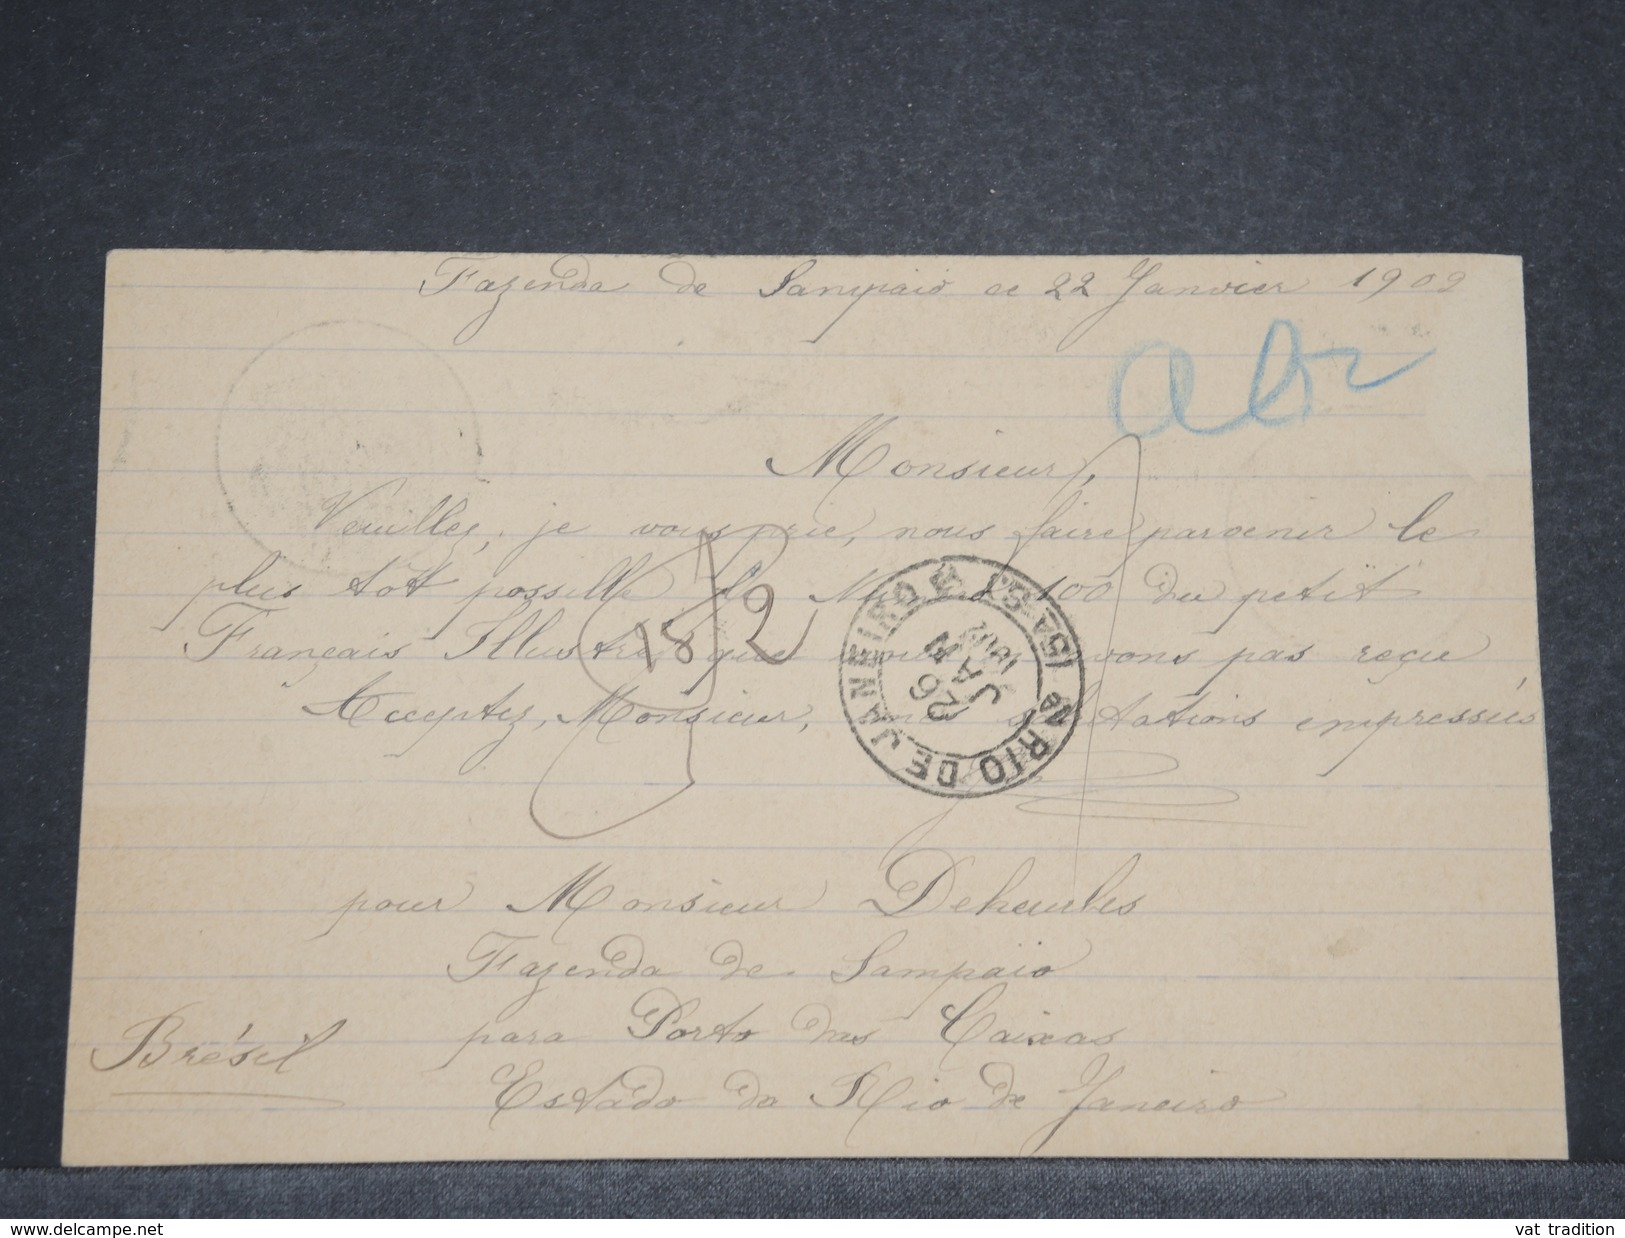 Fazenda de Sampaio ce 22 Janvier 1902
abr
Monsieur,
Veuillez, je vous prie, nous faire parvenir le
plus tôt possible le No 100 du petit
Français Illustré que nous avons pas reçu
Acceptez, Monsieur, salutations empressées
182
RIO DE JANEIRO
26
JAN
1902
pour Monsieur
Fazenda de Sampaïo
para Porto das Caixas
Estado do Rio de Janeiro
Brésil
www.delcampe.net
vat tradition